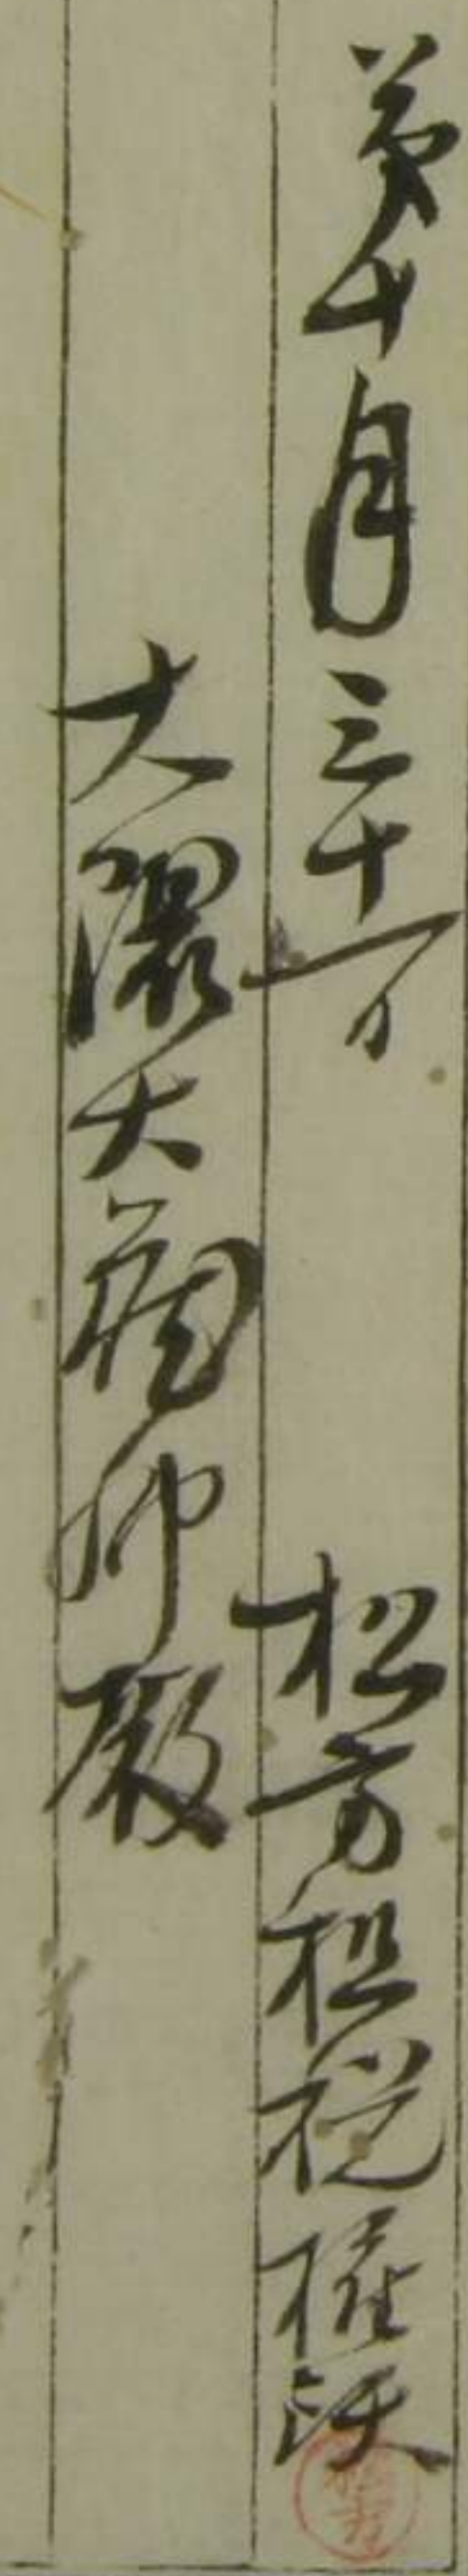 第十月三十一日
松方租税権頭
大隈大蔵卿殿
松方